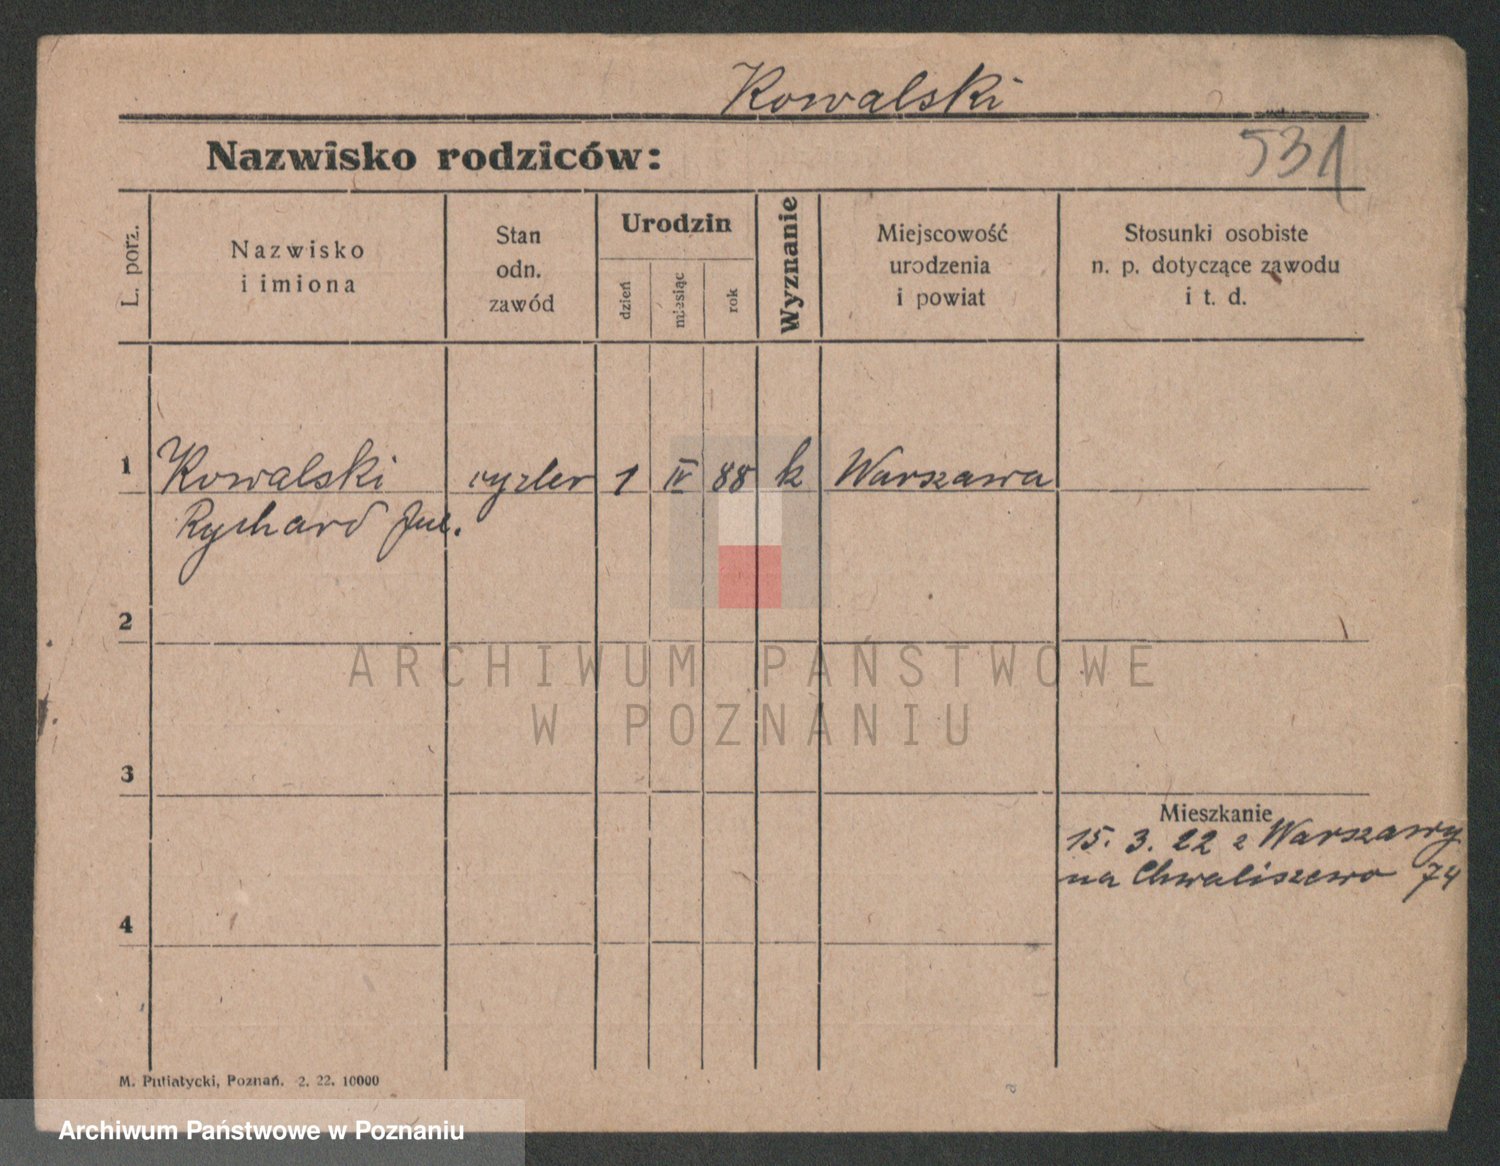 Kowalski
531
Nazwisko rodziców:
L. porz.
Nazwisko
i imiona
Stan
odn.
zawód
Urodzin
dzień
miesiąc
rok
Wyznanie
Miejscowość
urodzenia
i powiat
Stosunki osobiste
n. p. dotyczące zawodu
i t. d.
1 Kowalski ryzler 1 IV 88 k Warszawa
Rychard Jul.
2
ARCHIWUM PAŃSTWOWE
W POZNANIU
3
Mieszkanie
15. 3. 22 z Warszawy
na Chwaliszewo 74
4
M. Putiatycki, Poznań. 2. 22. 10000
Archiwum Państwowe w Poznaniu